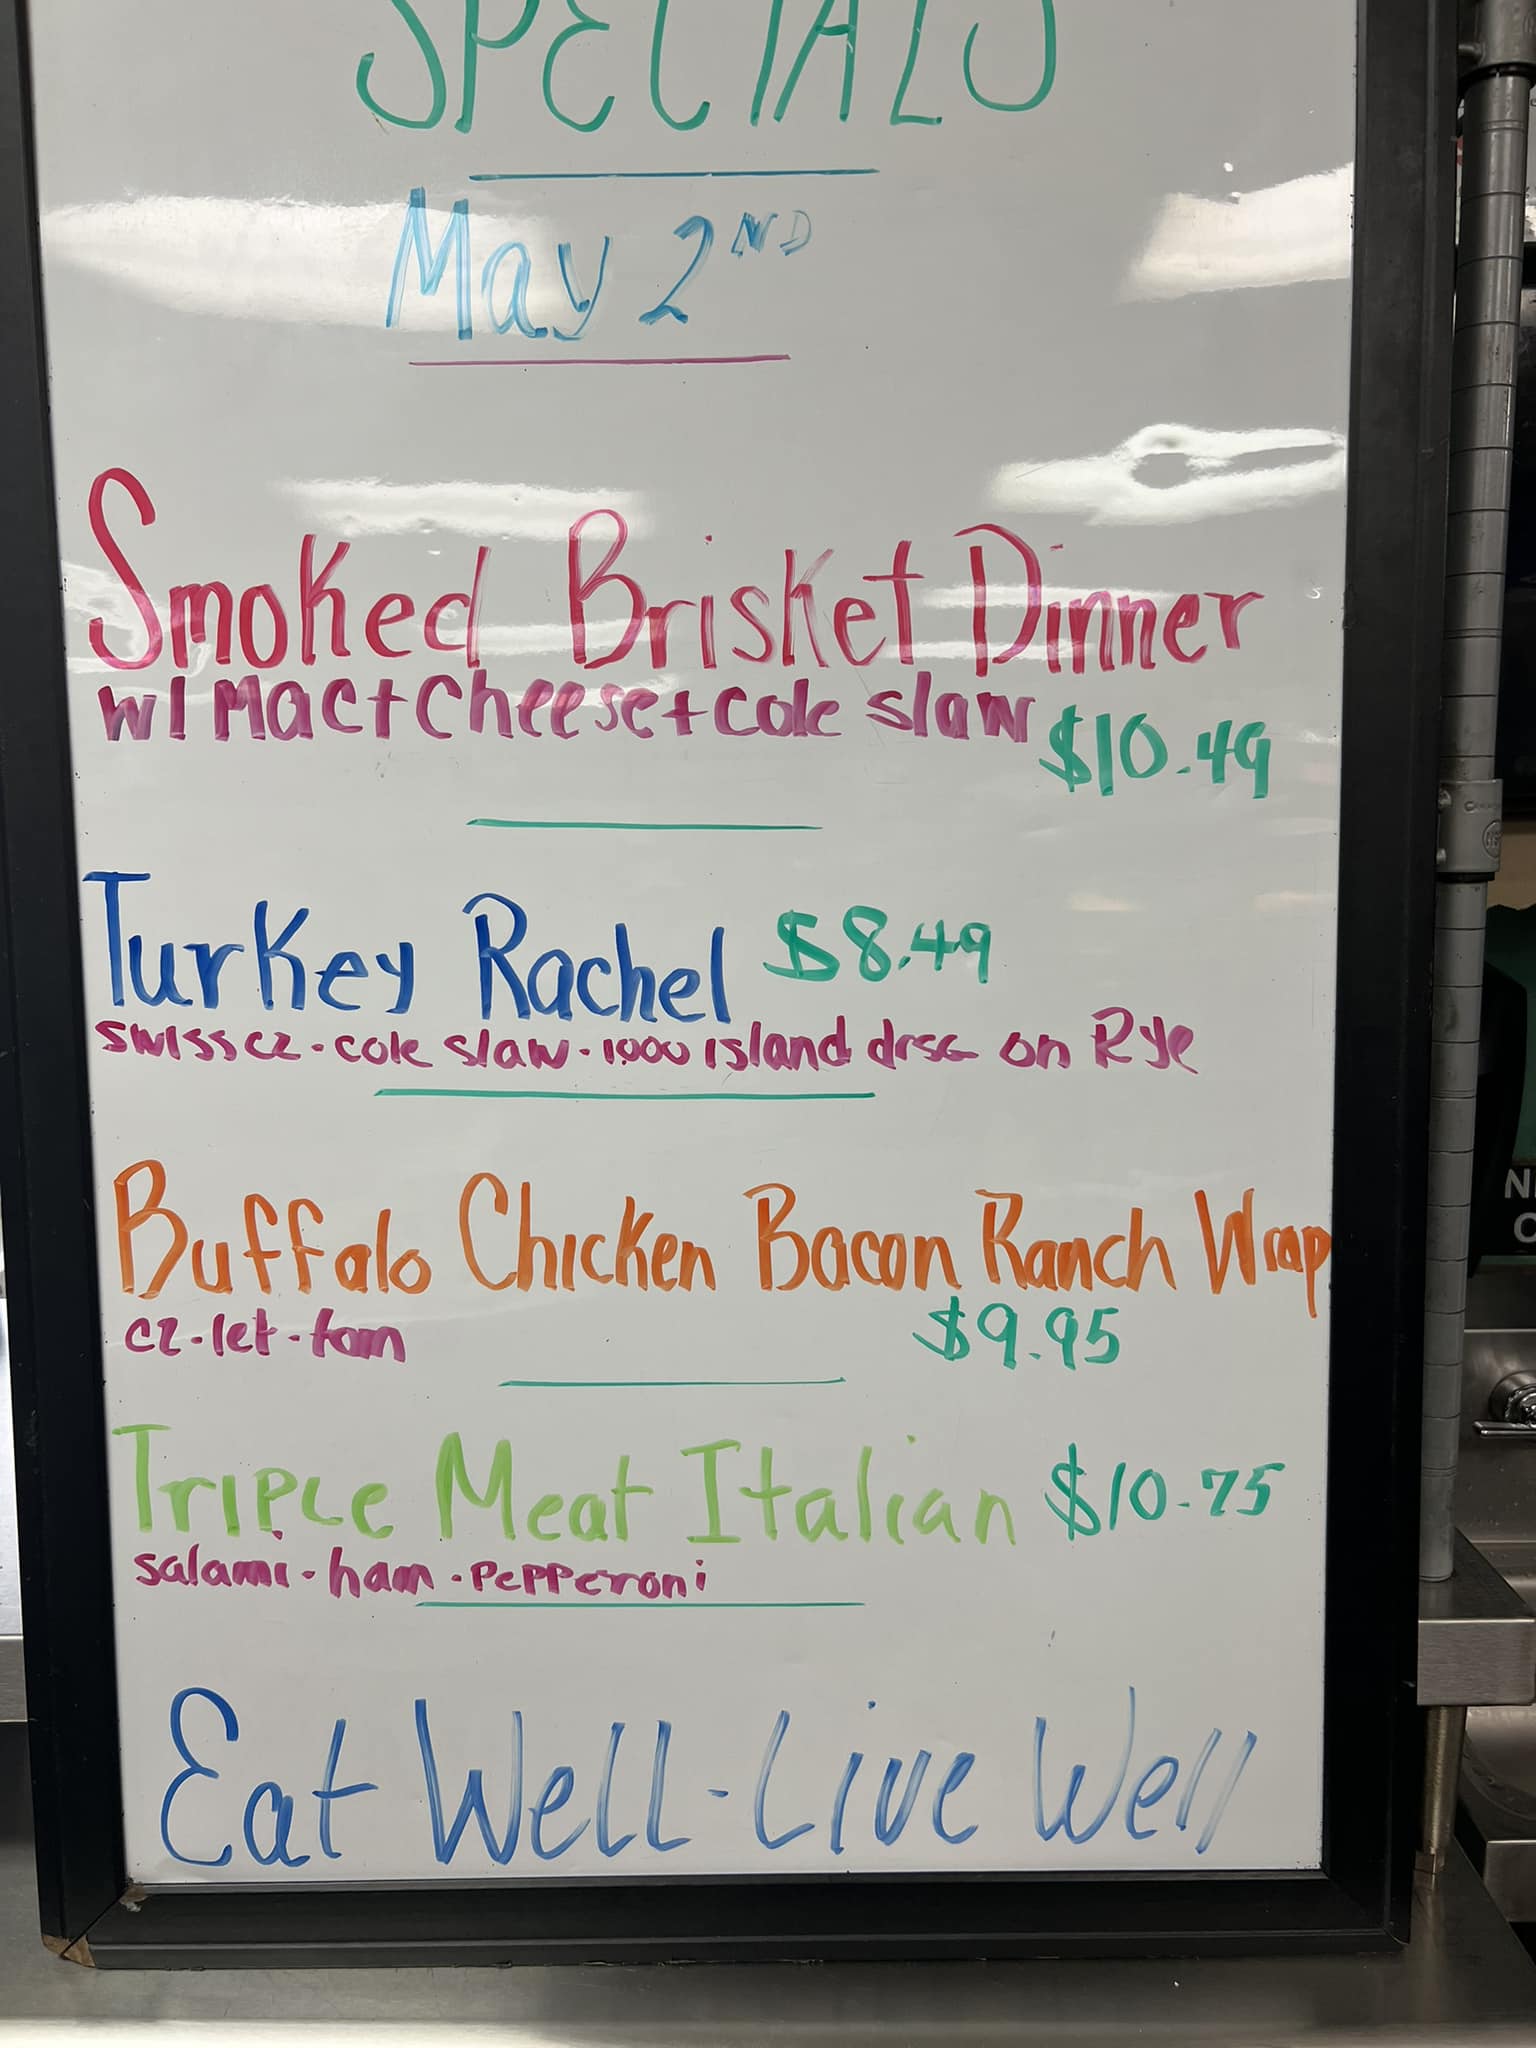 SPECIALS
May 2ND
Smoked Brisket Dinner
w/ Mac + Cheese + Cole slaw
$10.49
Turkey Rachel $8.49
swiss cz - cole slaw - 1000 island drsg on Rye
Buffalo Chicken Bacon Ranch Wrap
cz - let - tom $9.95
Triple Meat Italian $10.75
salami - ham - pepperoni
Eat Well - Live Well